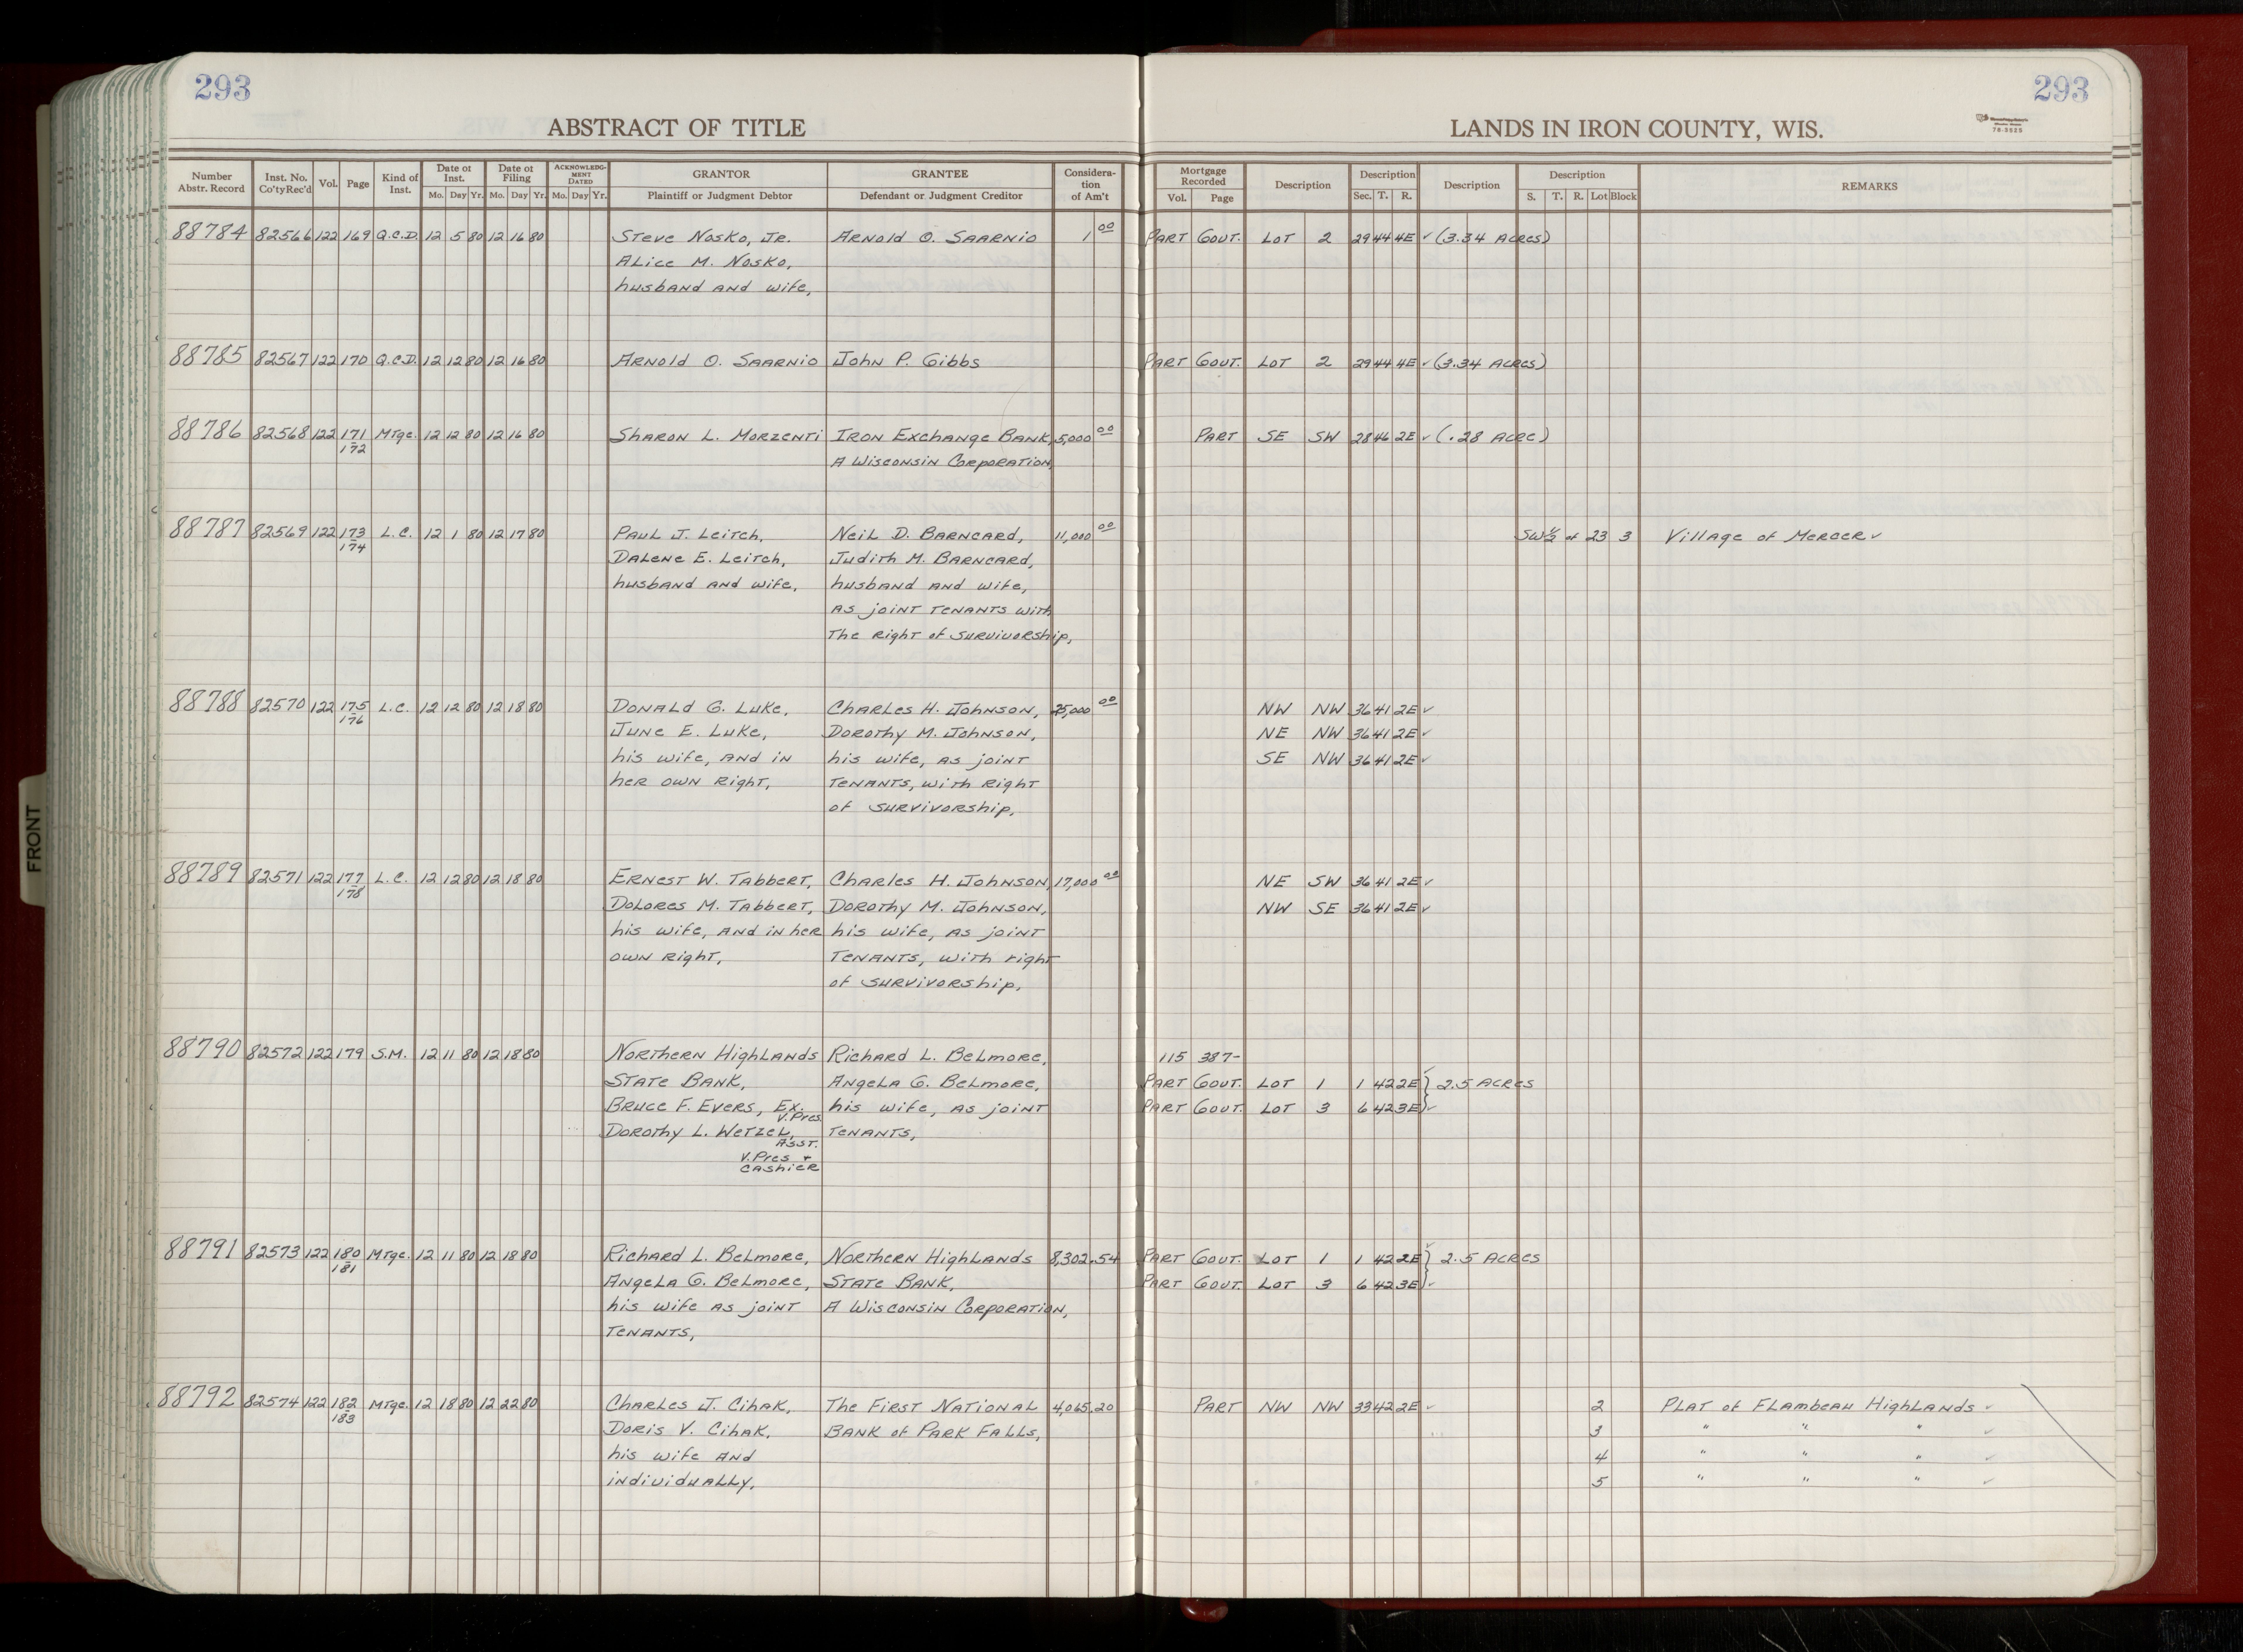 293
293
ABSTRACT OF TITLE
LANDS IN IRON COUNTY, WIS.
78-9525
Number Abstr. Record | Inst. No. Co'ty Rec'd | Vol. | Page | Kind of Inst. | Date of Inst. Mo. Day Yr. | Date of Filing Mo. Day Yr. | ACKNOWLEDGMENT DATED Mo. Day Yr. | GRANTOR Plaintiff or Judgment Debtor | GRANTEE Defendant or Judgment Creditor | Consideration of Am't | Mortgage Recorded Vol. Page | Description | Description Sec. T. R. | Description | Description S. T. R. Lot Block | REMARKS
88784 82566 122 169 Q.C.D. 12 5 80 12 16 80 Steve Nosko, Jr. Arnold O. Saarnio 1 00 Part Govt. Lot 2 29 44 4E ✓ (3.34 Acres)
Alice M. Nosko,
husband and wife,
88785 82567 122 170 Q.C.D. 12 12 80 12 16 80 Arnold O. Saarnio John P. Gibbs Part Govt. Lot 2 29 44 4E ✓ (3.34 Acres)
88786 82568 122 171-172 Mtge. 12 12 80 12 16 80 Sharon L. Morzenti Iron Exchange Bank, 5,000 00 Part SE SW 28 46 2E ✓ (.28 Acre)
A Wisconsin Corporation,
88787 82569 122 173-174 L.C. 12 1 80 12 17 80 Paul J. Leitch, Neil D. Barncard, 11,000 00 SW½ of 23 3 Village of Mercer ✓
Dalene E. Leitch, Judith M. Barncard,
husband and wife, husband and wife,
as joint tenants with
the right of survivorship,
88788 82570 122 175-176 L.C. 12 12 80 12 18 80 Donald G. Luke, Charles H. Johnson, 25,000 00 NW NW 36 41 2E ✓
June E. Luke, Dorothy M. Johnson, NE NW 36 41 2E ✓
his wife, and in his wife, as joint SE NW 36 41 2E ✓
her own right, tenants, with right
of survivorship,
88789 82571 122 177-178 L.C. 12 12 80 12 18 80 Ernest W. Tabbert, Charles H. Johnson, 17,000 00 NE SW 36 41 2E ✓
Dolores M. Tabbert, Dorothy M. Johnson, NW SE 36 41 2E ✓
his wife, and in her his wife, as joint
own right, tenants, with right
of survivorship,
88790 82572 122 179 S.M. 12 11 80 12 18 80 Northern Highlands Richard L. Belmore, 115 387-
State Bank, Angela G. Belmore, Part Govt. Lot 1 1 42 2E } 2.5 Acres
Bruce F. Evers, Ex. V.Pres his wife, as joint Part Govt. Lot 3 6 42 3E ✓
Dorothy L. Wetzel, Asst. tenants,
V.Pres + Cashier
88791 82573 122 180-181 Mtge. 12 11 80 12 18 80 Richard L. Belmore, Northern Highlands 8,302.54 Part Govt. Lot 1 1 42 2E } 2.5 Acres
Angela G. Belmore, State Bank, Part Govt. Lot 3 6 42 3E ✓
his wife as joint A Wisconsin Corporation,
tenants,
88792 82574 122 182-183 Mtge. 12 18 80 12 22 80 Charles J. Cihak, The First National 4,065.20 Part NW NW 33 42 2E ✓ 2 Plat of Flambeau Highlands ✓
Doris V. Cihak, Bank of Park Falls, 3 " " " ✓
his wife and 4 " " " ✓
individually, 5 " " " ✓
FRONT